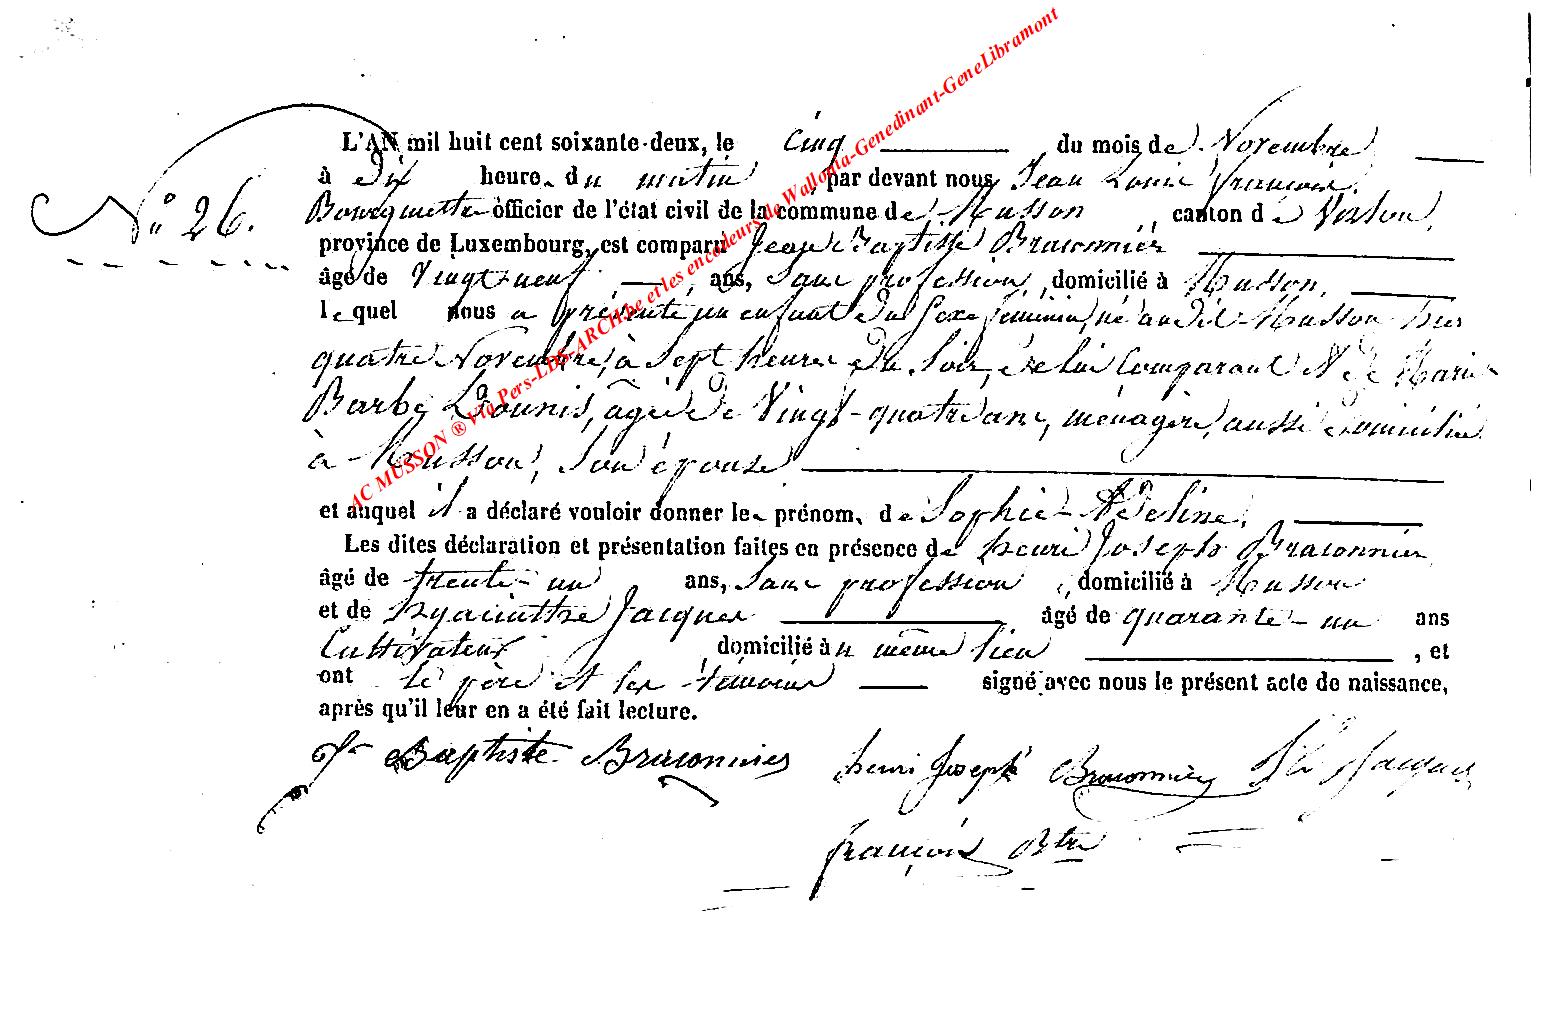 L'AN mil huit cent soixante-deux, le cinq du mois de Novembre
à dix heures du matin, par devant nous Jean Louis François
N° 26.
Bourguette officier de l'état civil de la commune de Musson, canton de Virton,
province de Luxembourg, est comparu Jean Baptiste Braconnier
âgé de Vingt neuf ans, sans profession, domicilié à Musson,
lequel nous a présenté un enfant du sexe féminin, né audit Musson hier
quatre Novembre, à sept heures du soir, de lui comparant & de Marie
Barbe, âgée de Vingt-quatre ans, ménagère, aussi domiciliée
à Musson, son épouse
et auquel il a déclaré vouloir donner les prénoms de Sophie-Adeline,
Les dites déclaration et présentation faites en présence de henri Joseph Braconnier
âgé de trente-un ans, sans profession, domicilié à Musson
et de Hyacinthe Jacques âgé de quarante-un ans
Cultivateur, domicilié au même lieu, et
ont le père et les témoins signé avec nous le présent acte de naissance,
après qu'il leur en a été fait lecture.
Jn Baptiste Braconnier henri Joseph Braconnier Jacques
françois Btte
AC MUSSON ® Via Pers-LDS-ARCHbe et les encodeurs de Wallonia-Genedinant-GeneLibramont